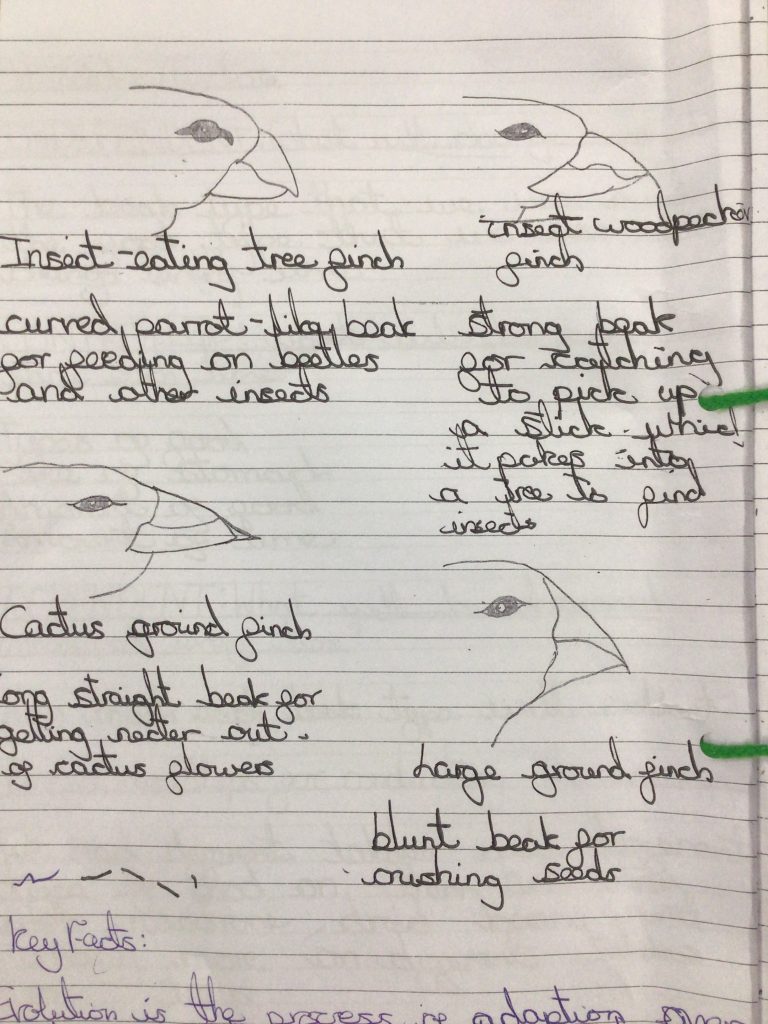 Insect-eating tree finch
curved, parrot-like beak
for feeding on beetles
and other insects
insect woodpecker
finch
strong beak
for catching
to pick up
a stick which
it pokes into
a tree to find
insects
Cactus ground finch
long straight beak for
getting necter out
of cactus flowers
Large ground finch
blunt beak for
crushing seeds
Key Facts:
Evolution is the process of adaption